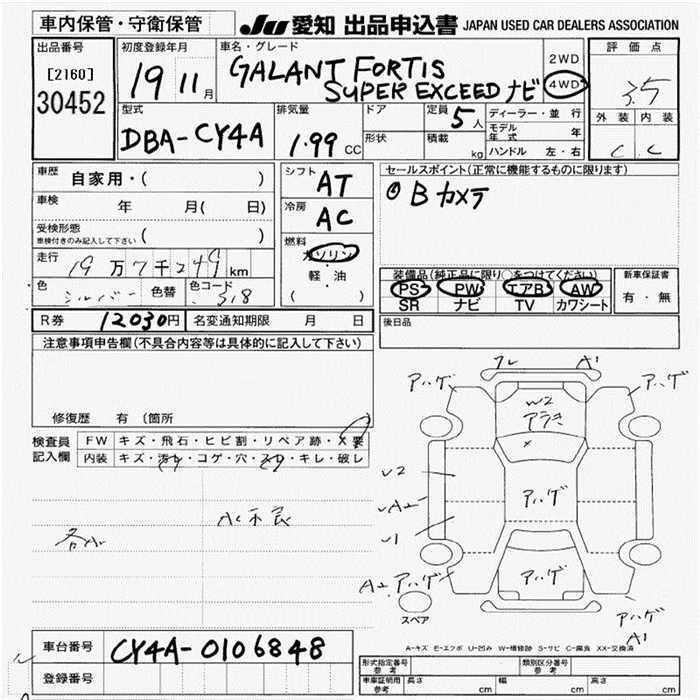 車内保管・守衛保管
JU 愛知 出品申込書 JAPAN USED CAR DEALERS ASSOCIATION
出品番号
[2160]
30452
初度登録年月
19 11月
車名・グレード
GALANT FORTIS
SUPER EXCEED ナビ
2WD
4WD
評価点
3.5
外装 内装
C C
型式
DBA-CY4A
排気量
1.99 CC
ドア
形状
定員 5人
積載 kg
ディーラー・並行
モデル年式 年
ハンドル 左・右
車歴 自家用・( )
車検 年 月( 日)
受検形態
車検付きのみ記入して下さい ( )
走行 19万7千249km
色 シルバー 色替 色コード 318
シフト AT
冷房 AC
燃料
ガソリン
軽・油
( )
セールスポイント(正常に機能するものに限ります)
Bカメラ
装備品(純正品に限り○をつけてください)
PS PW エアB AW
SR ナビ TV カワシート
新車保証書
有・無
後日品
R券 12030円 名変通知期限 月 日
注意事項申告欄(不具合内容等は具体的に記入して下さい)
修復歴 有 (箇所 )
検査員記入欄
FW キズ・飛石・ヒビ割・リペア跡・X要
内装 キズ・汚レ・コゲ・穴・スレ・キレ・破レ
各A
AC不良
フレ A1
アハゲ アハゲ
W2
アラキ
x
U2
アハゲ
A2
U1
A2 アハゲ
アハゲ
アハゲ
A1
スペア
A-キズ E-エクボ U-凹み W-補修跡 S-サビ C-腐食 XX-交換済
車台番号 CY4A-0106848
登録番号
形式指定番号 参考
類別区分番号 参考
車庫証明用 参考 長さ cm 幅 cm 高さ cm